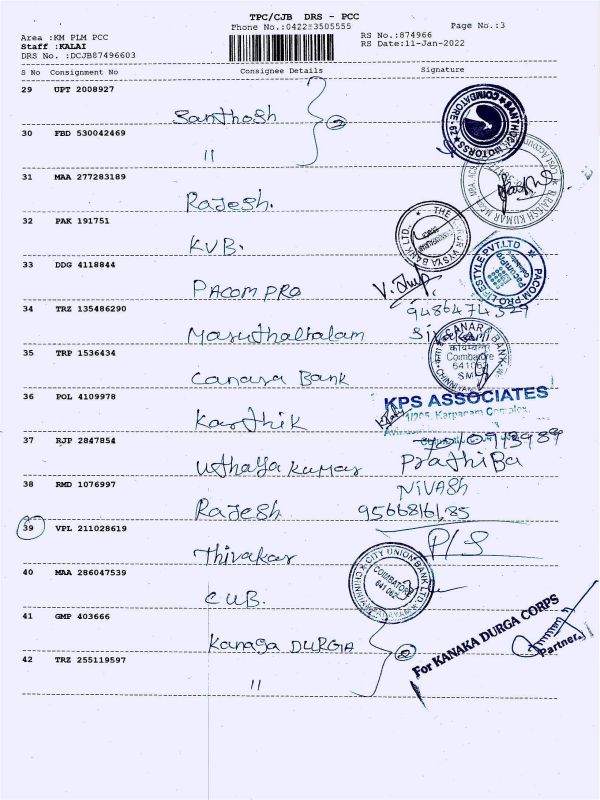 TPC/CJB DRS - PCC
Phone No.:0422-3505555 Page No.:3
Area :KM PLM PCC RS No.:874966
Staff :KALAI RS Date:11-Jan-2022
DRS No. :DCJB87496603
S No Consignment No Consignee Details Signature
29 UPT 2008927
Santhosh
30 FBD 530042469
"
31 MAA 277283189
Rajesh.
32 PAK 191751
KVB.
33 DDG 4118844
PACOM PRO
34 TRZ 135486290
9486474329
Maruthaltalam
35 TRP 1536434
CANARA BANK
Coimbatore
Canara Bank
36 POL 4109978
KPS ASSOCIATES
1/205, Karpanam Complex,
Karthik
37 RJP 2847854
Uthaya kumar Prathiba
38 RMD 1076997 NIVASH
Rajesh
39 VPL 211028619
P/S
Thivakar
CITY UNION BANK LTD.
COIMBATORE
40 MAA 286047539
CUB.
41 GMP 403666
Kanaga DURGA
For KANAKA DURGA CORPS
Partner.
42 TRZ 255119597
"